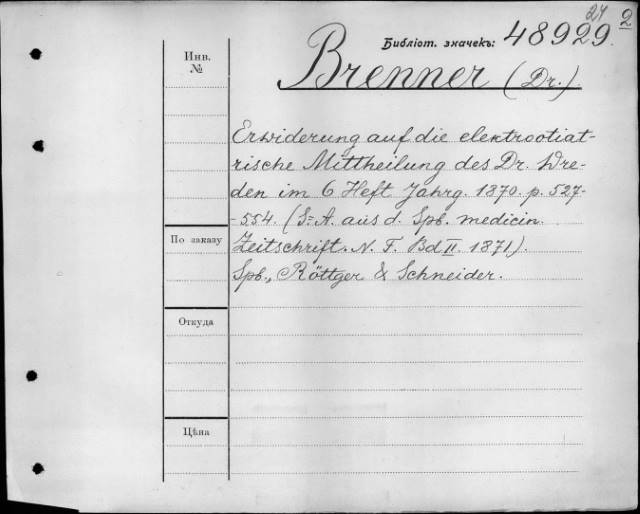 24 2
Библіот. значекъ: 48929.
Инв.
№
Brenner (Dr.)
Erwiderung auf die elektrootiat-
rische Mittheilung des Dr. Wre-
den im 6 Heft Jahrg. 1870. p. 527-
-554. (S=A. aus d. Spb. medicin.
По заказу
Zeitschrift. N. F. Bd II. 1871).
Spb., Röttger & Schneider.
Откуда
Цѣна